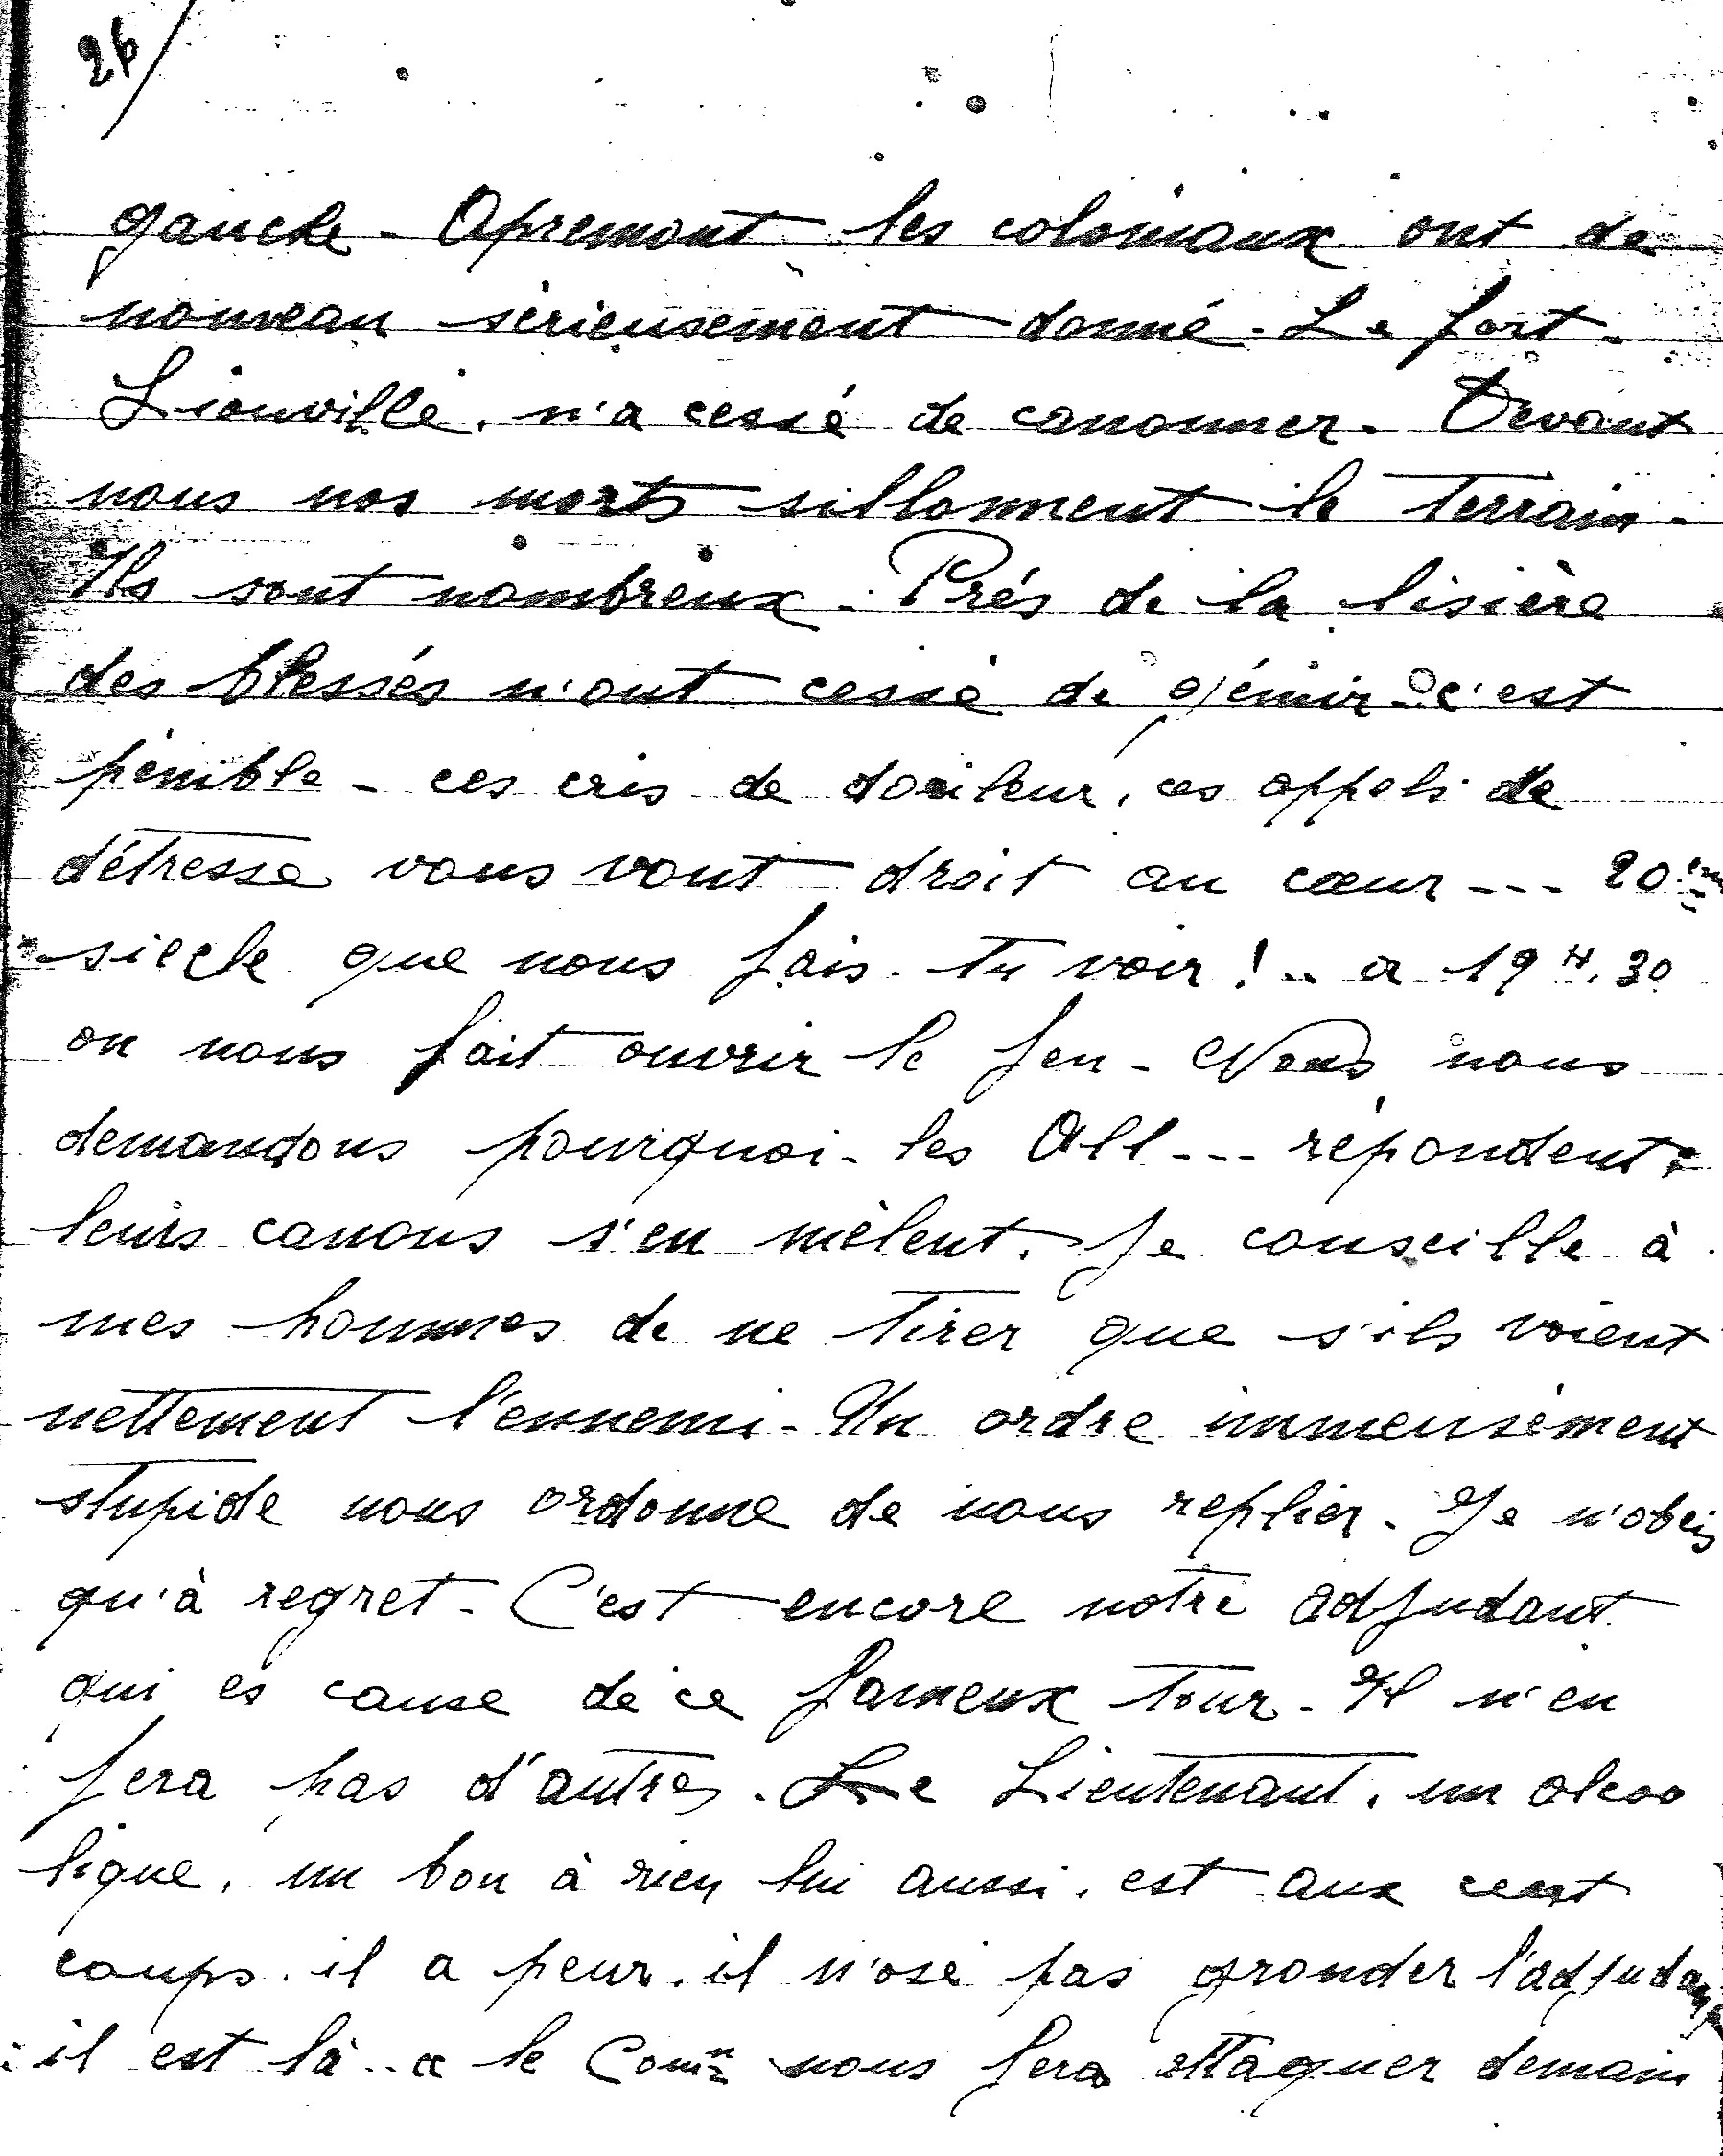 26/
gauche - Apremont les coloniaux ont de
nouveau sérieusement donné - Le fort
Liouville, n'a cessé de canonner. Devant
nous nos morts sillonnent le terrain -
Ils sont nombreux - Près de la lisière
des blessés n'ont cessé de gémir - c'est
pénible - ces cris de douleur, ces appels de
détresse vous vont droit au cœur --- 20ème
siècle que nous fais-tu voir ! .. a 19 H. 30
on nous fait ouvrir le feu - Nous nous
demandons pourquoi - les All --- répondent.
leurs canons s'en mêlent. Je conseille à
mes hommes de ne tirer que s'ils voient
nettement l'ennemi - Un ordre immensément
stupide nous ordonne de nous replier. Je n'obéis
qu'à regret - C'est encore notre adjudant
qui es cause de ce fameux tour - Il n'en
fera pas d'autres. Le Lieutenant, un alcoo
lique, un bon à rien lui aussi, est aux cent
coups, il a peur, il n'ose pas gronder l'adjudant
il est là .. " le Comm nous fera attaquer demain